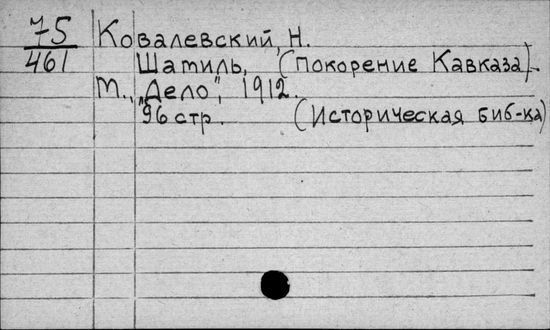 75 Ковалевский, Н.
461 Шатиль, (Покорение Кавказа).
М., „Дело", 1912.
96 стр. (Историческая биб-ка)